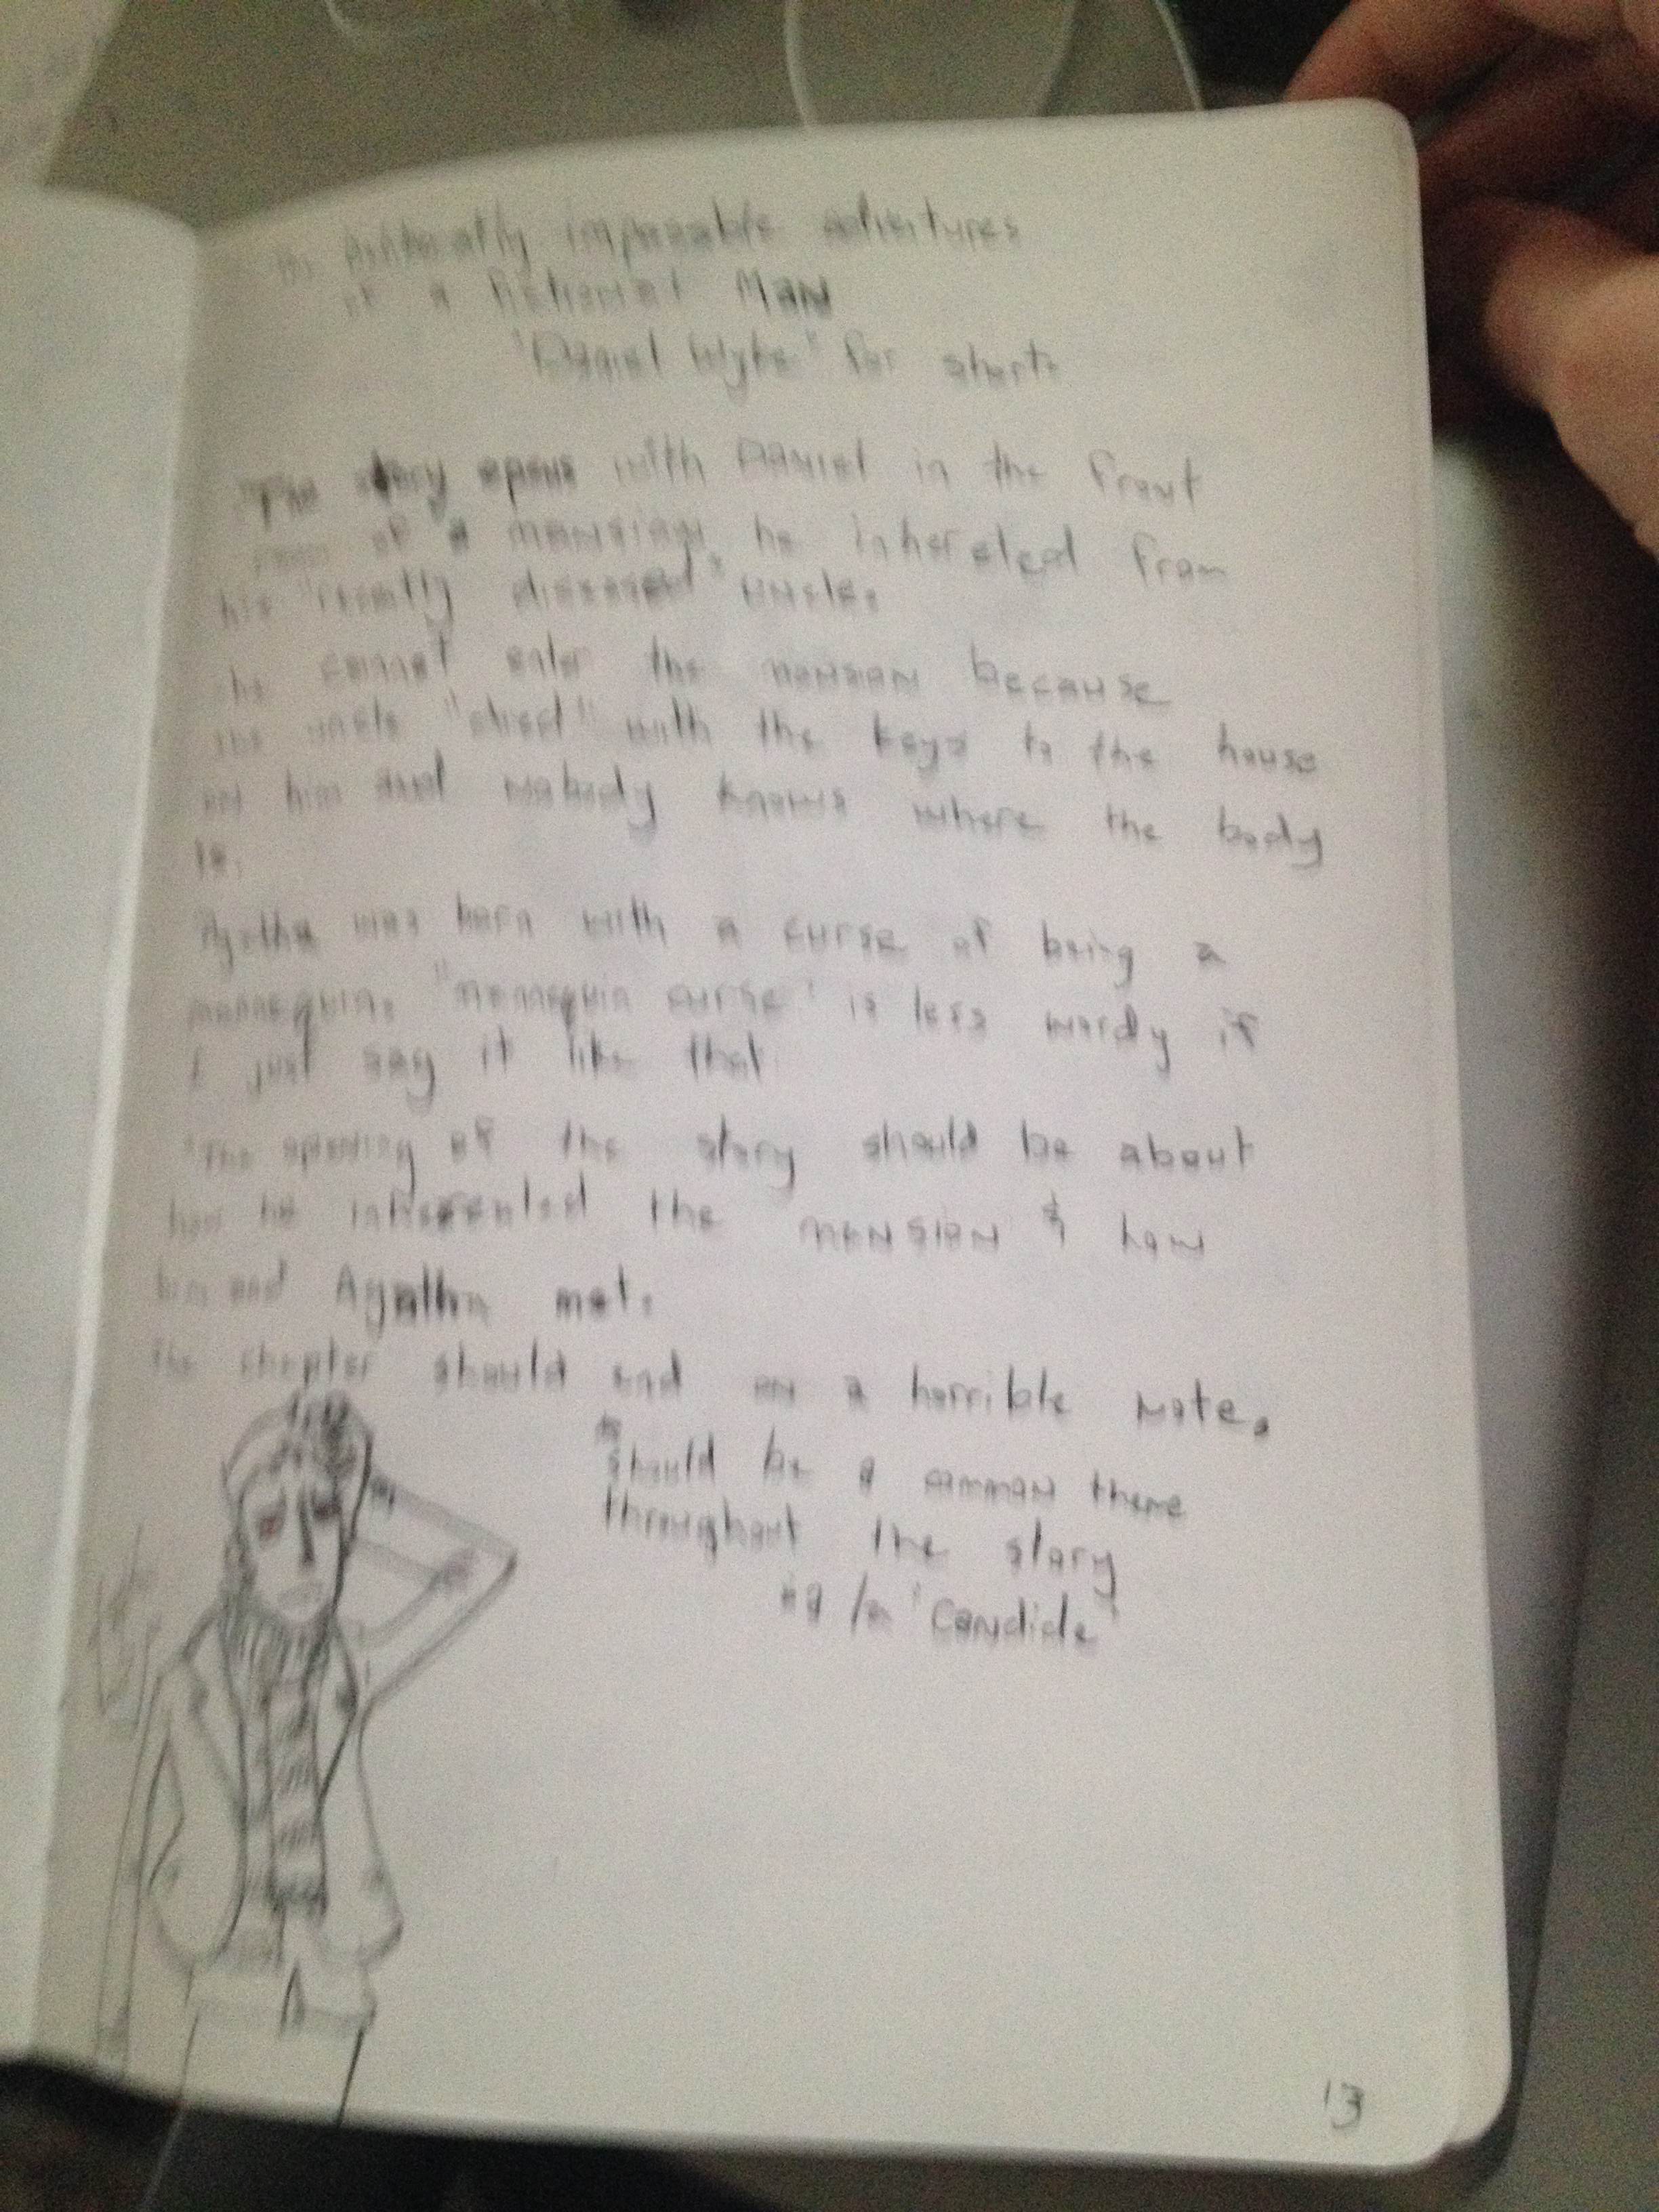 impossible adventures
of a fictional MAN
"Daniel Wyke" for short.
The story opens with DANIEL in the front
of a mansion he inhereted from
his "recently diseased" uncle.
he cannot enter the mansion because
the uncle "died" with the keys to the house
on him and nobody knows where the body
is.
Agatha was born with a curse of being a
mannequin. "mannequin curse" is less wordy if
I just say it like that
The opening of the story should be about
how he the mansion & how
him and Agatha met.
The chapter should end on a horrible note.
should be a common theme
throughout the story
"Candide"
13